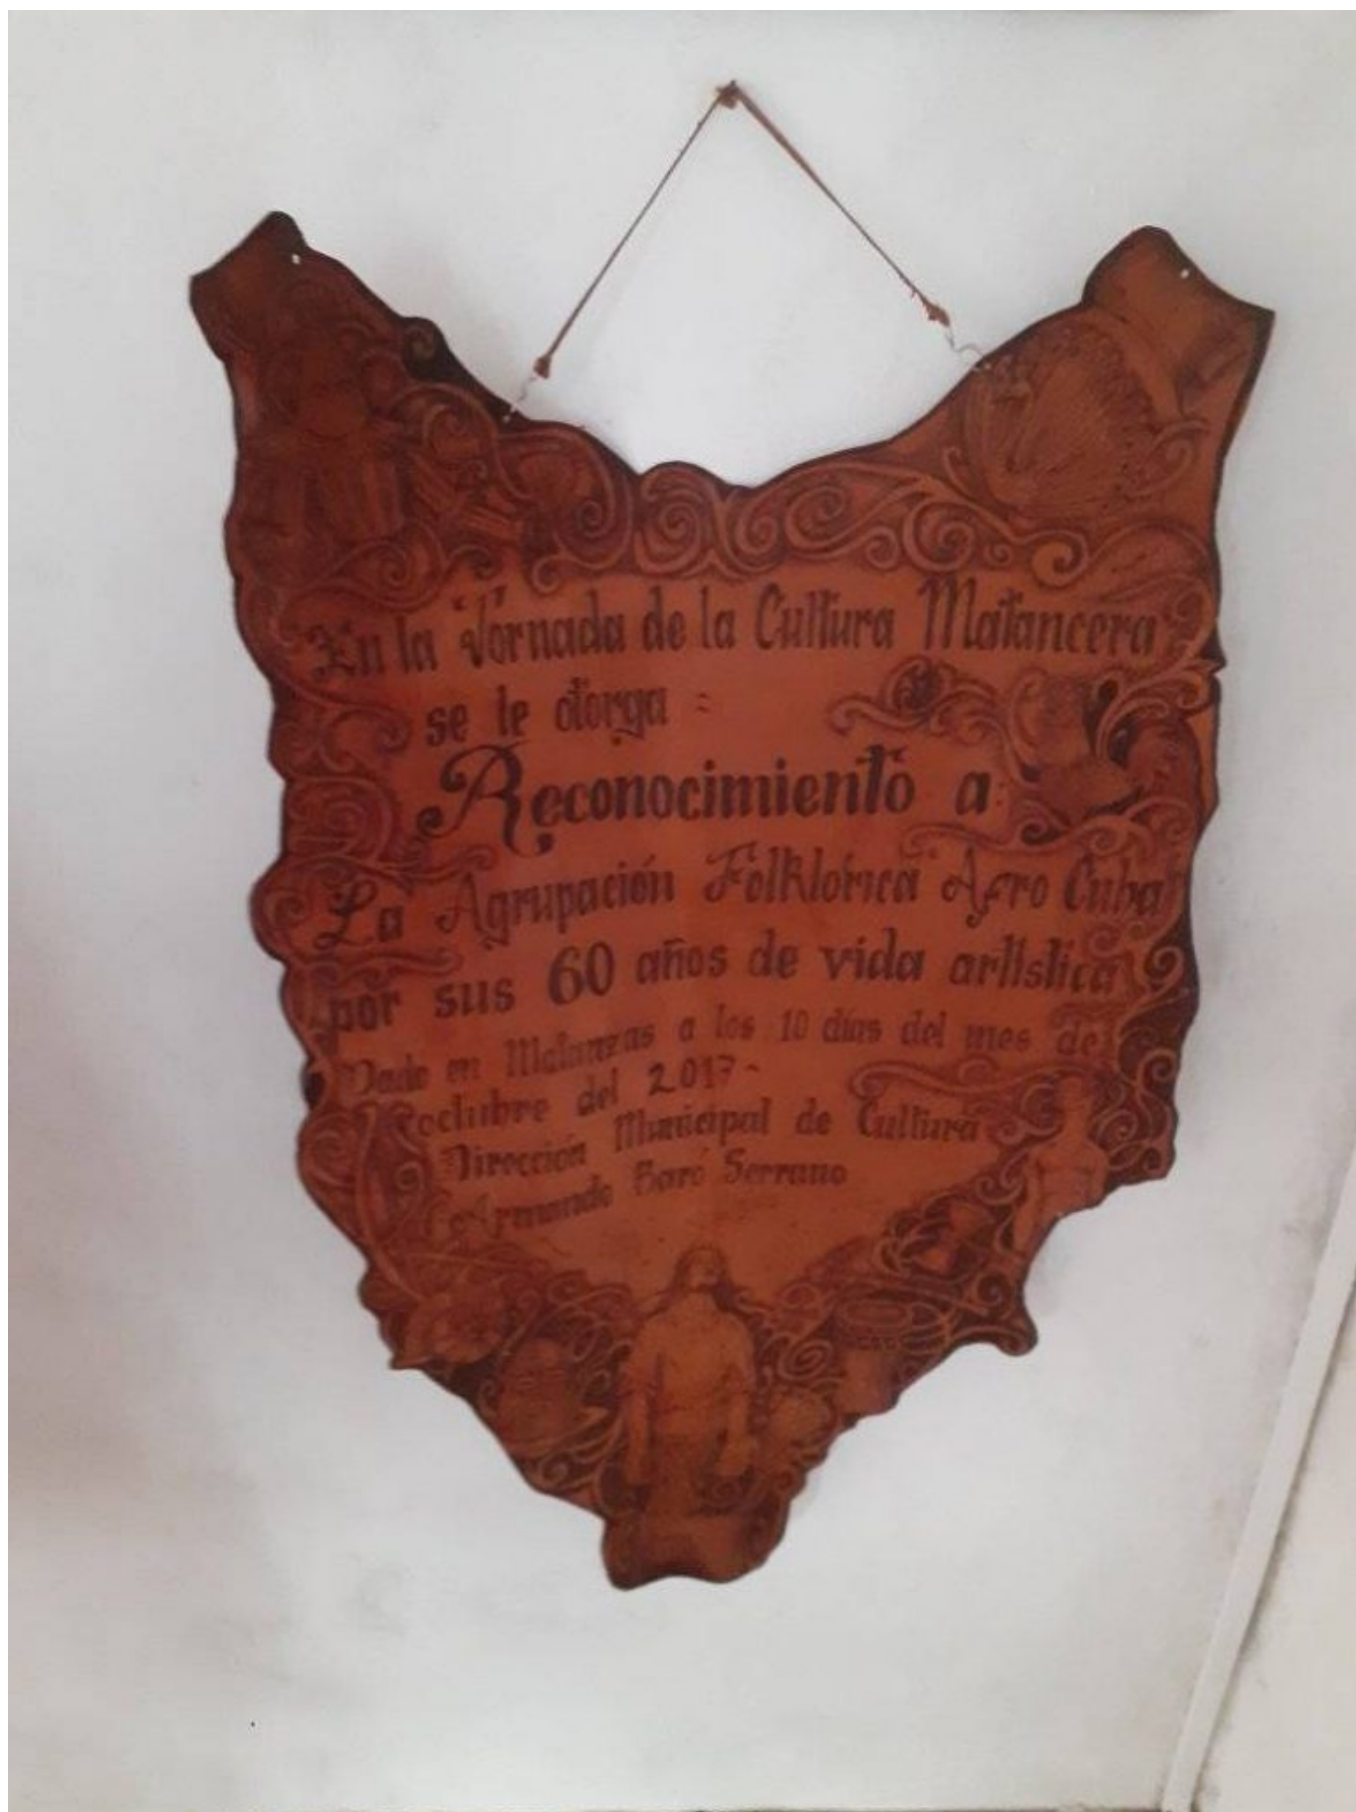 En la Jornada de la Cultura Matancera
se le otorga :
Reconocimiento a:
La Agrupación Folklórica "Afro Cuba"
por sus 60 años de vida artística
Dado en Matanzas a los 10 días del mes de
octubre del 2017-
Dirección Municipal de Cultura
Armando Baró Serrano